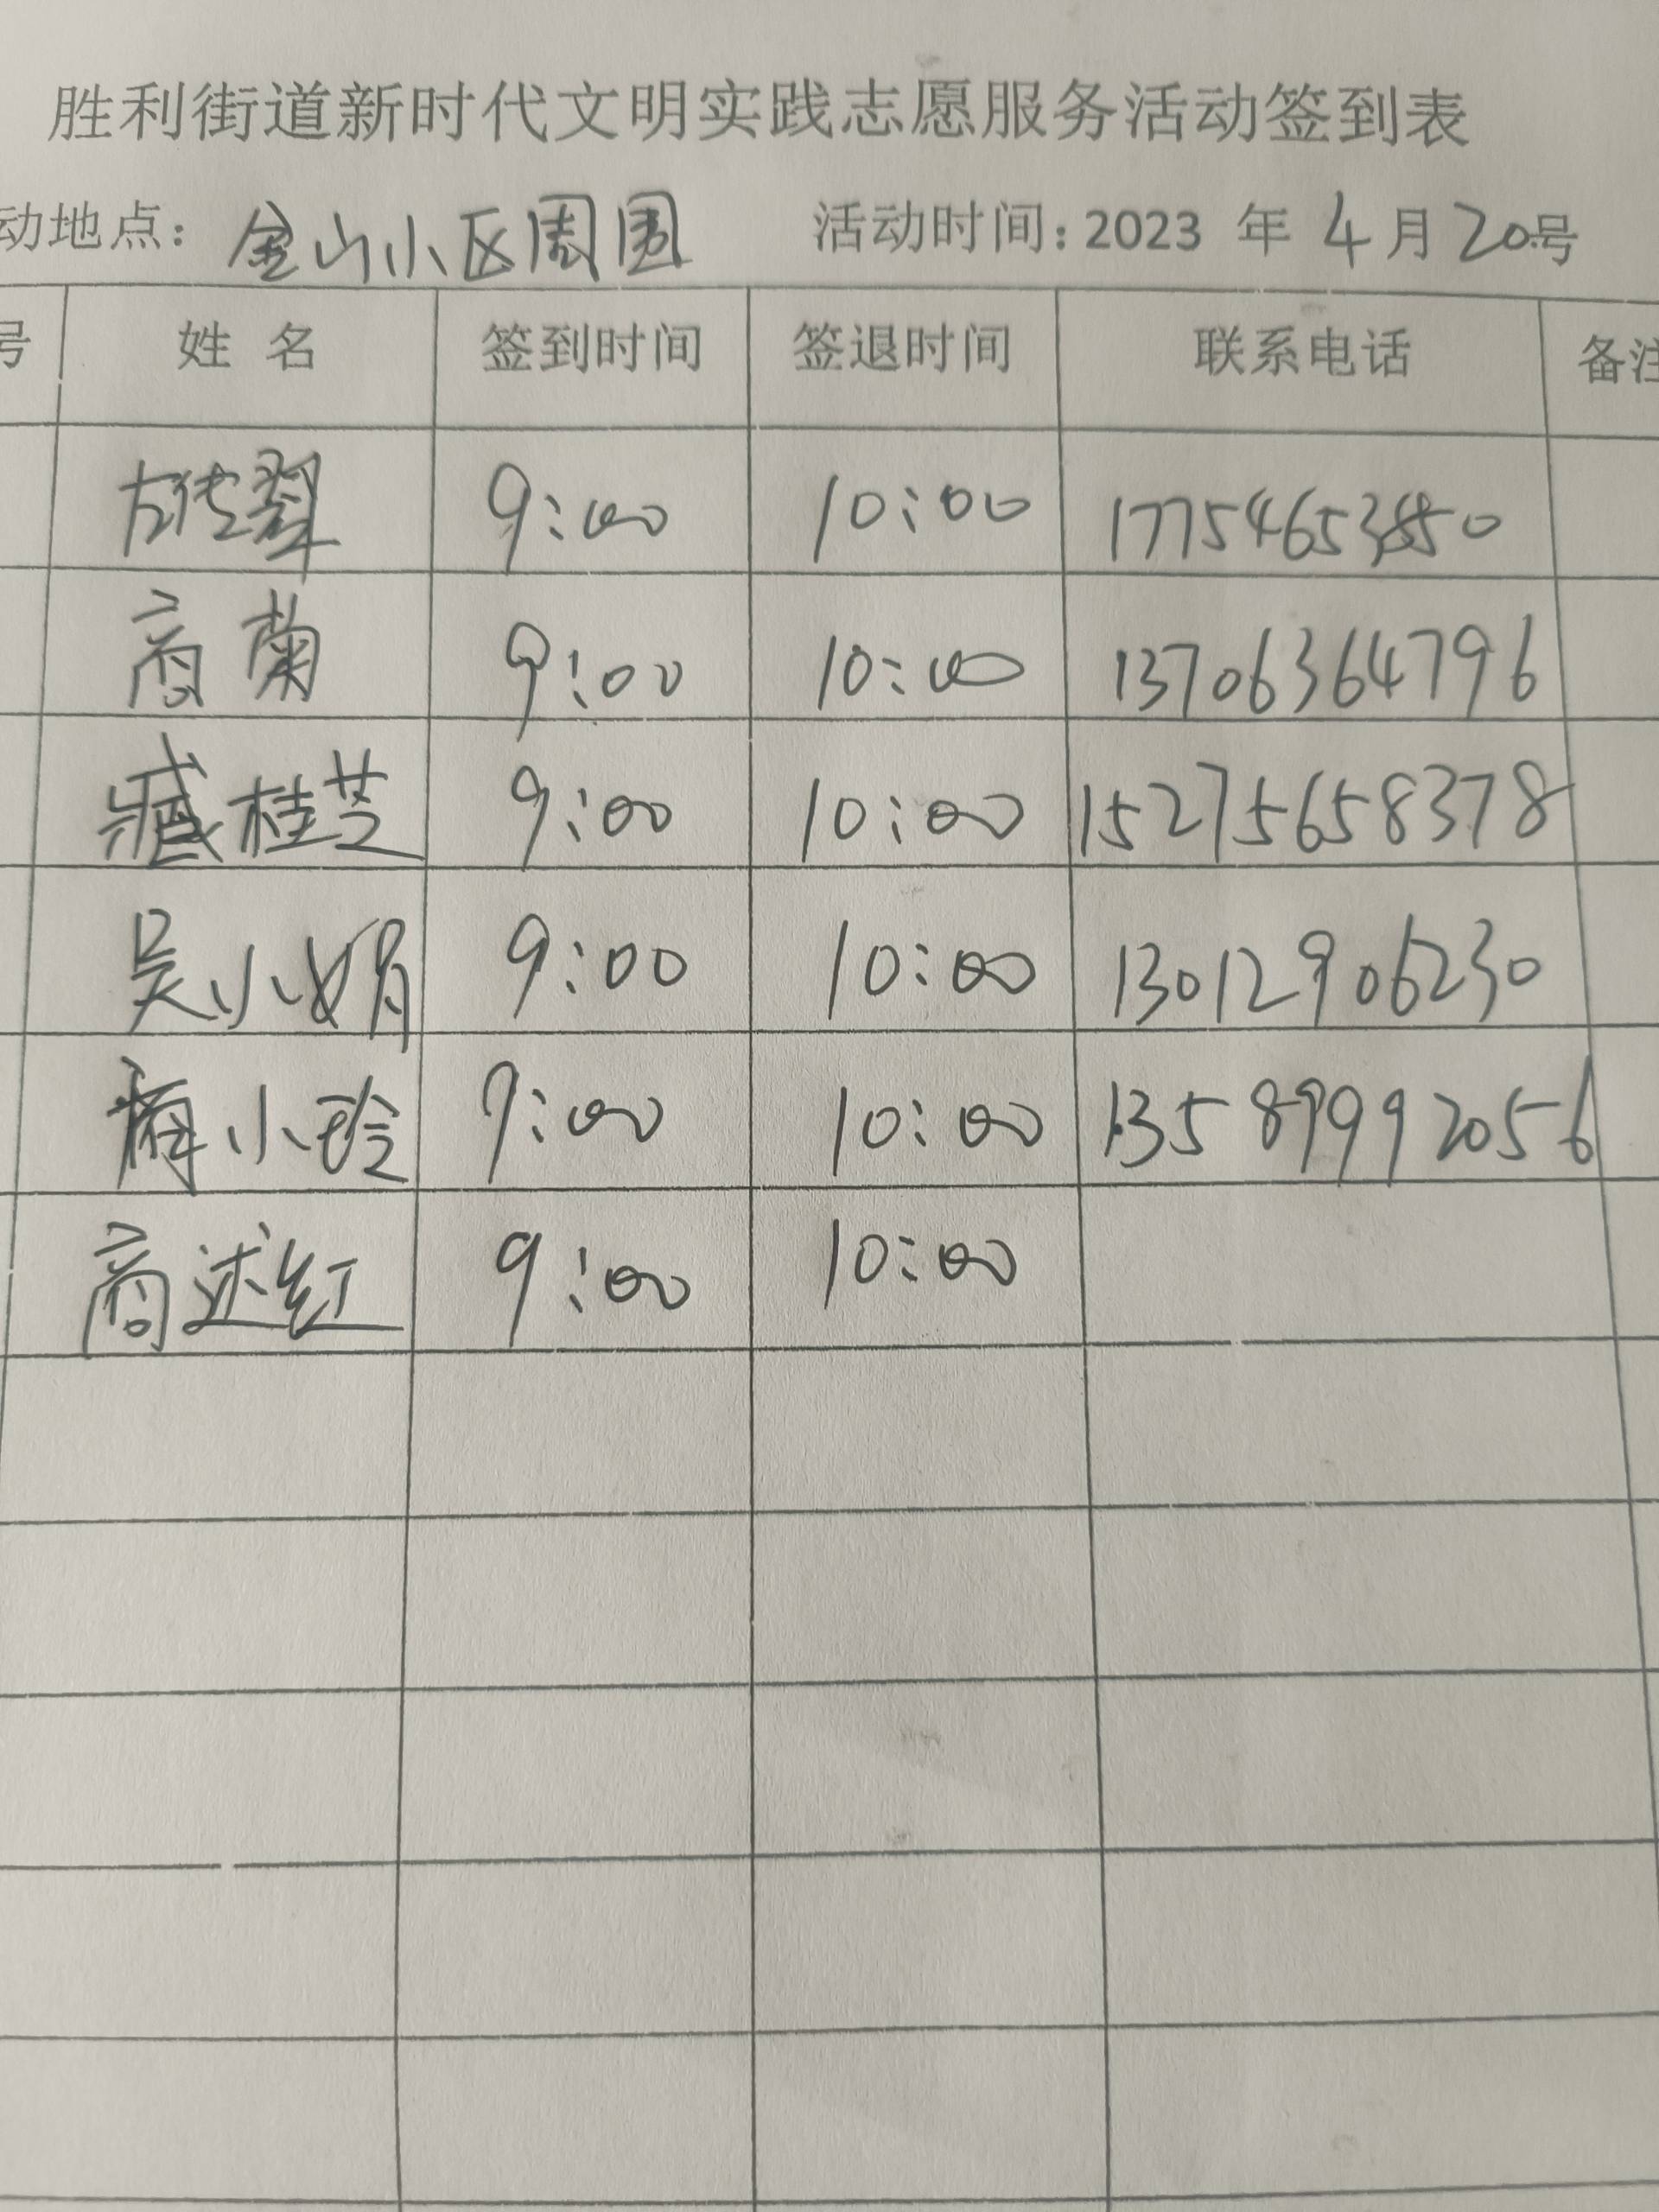 胜利街道新时代文明实践志愿服务活动签到表
动地点：金山小区周围 活动时间：2023 年 4 月 20号
号 姓 名 签到时间 签退时间 联系电话 备注
方传翠 9:00 10:00
高菊 9:00 10:00 13706364796
臧桂芝 9:00 10:00 15275658378
吴小娟 9:00 10:00 13012906230
梅小玲 9:00 10:00 13589992056
高述红 9:00 10:00